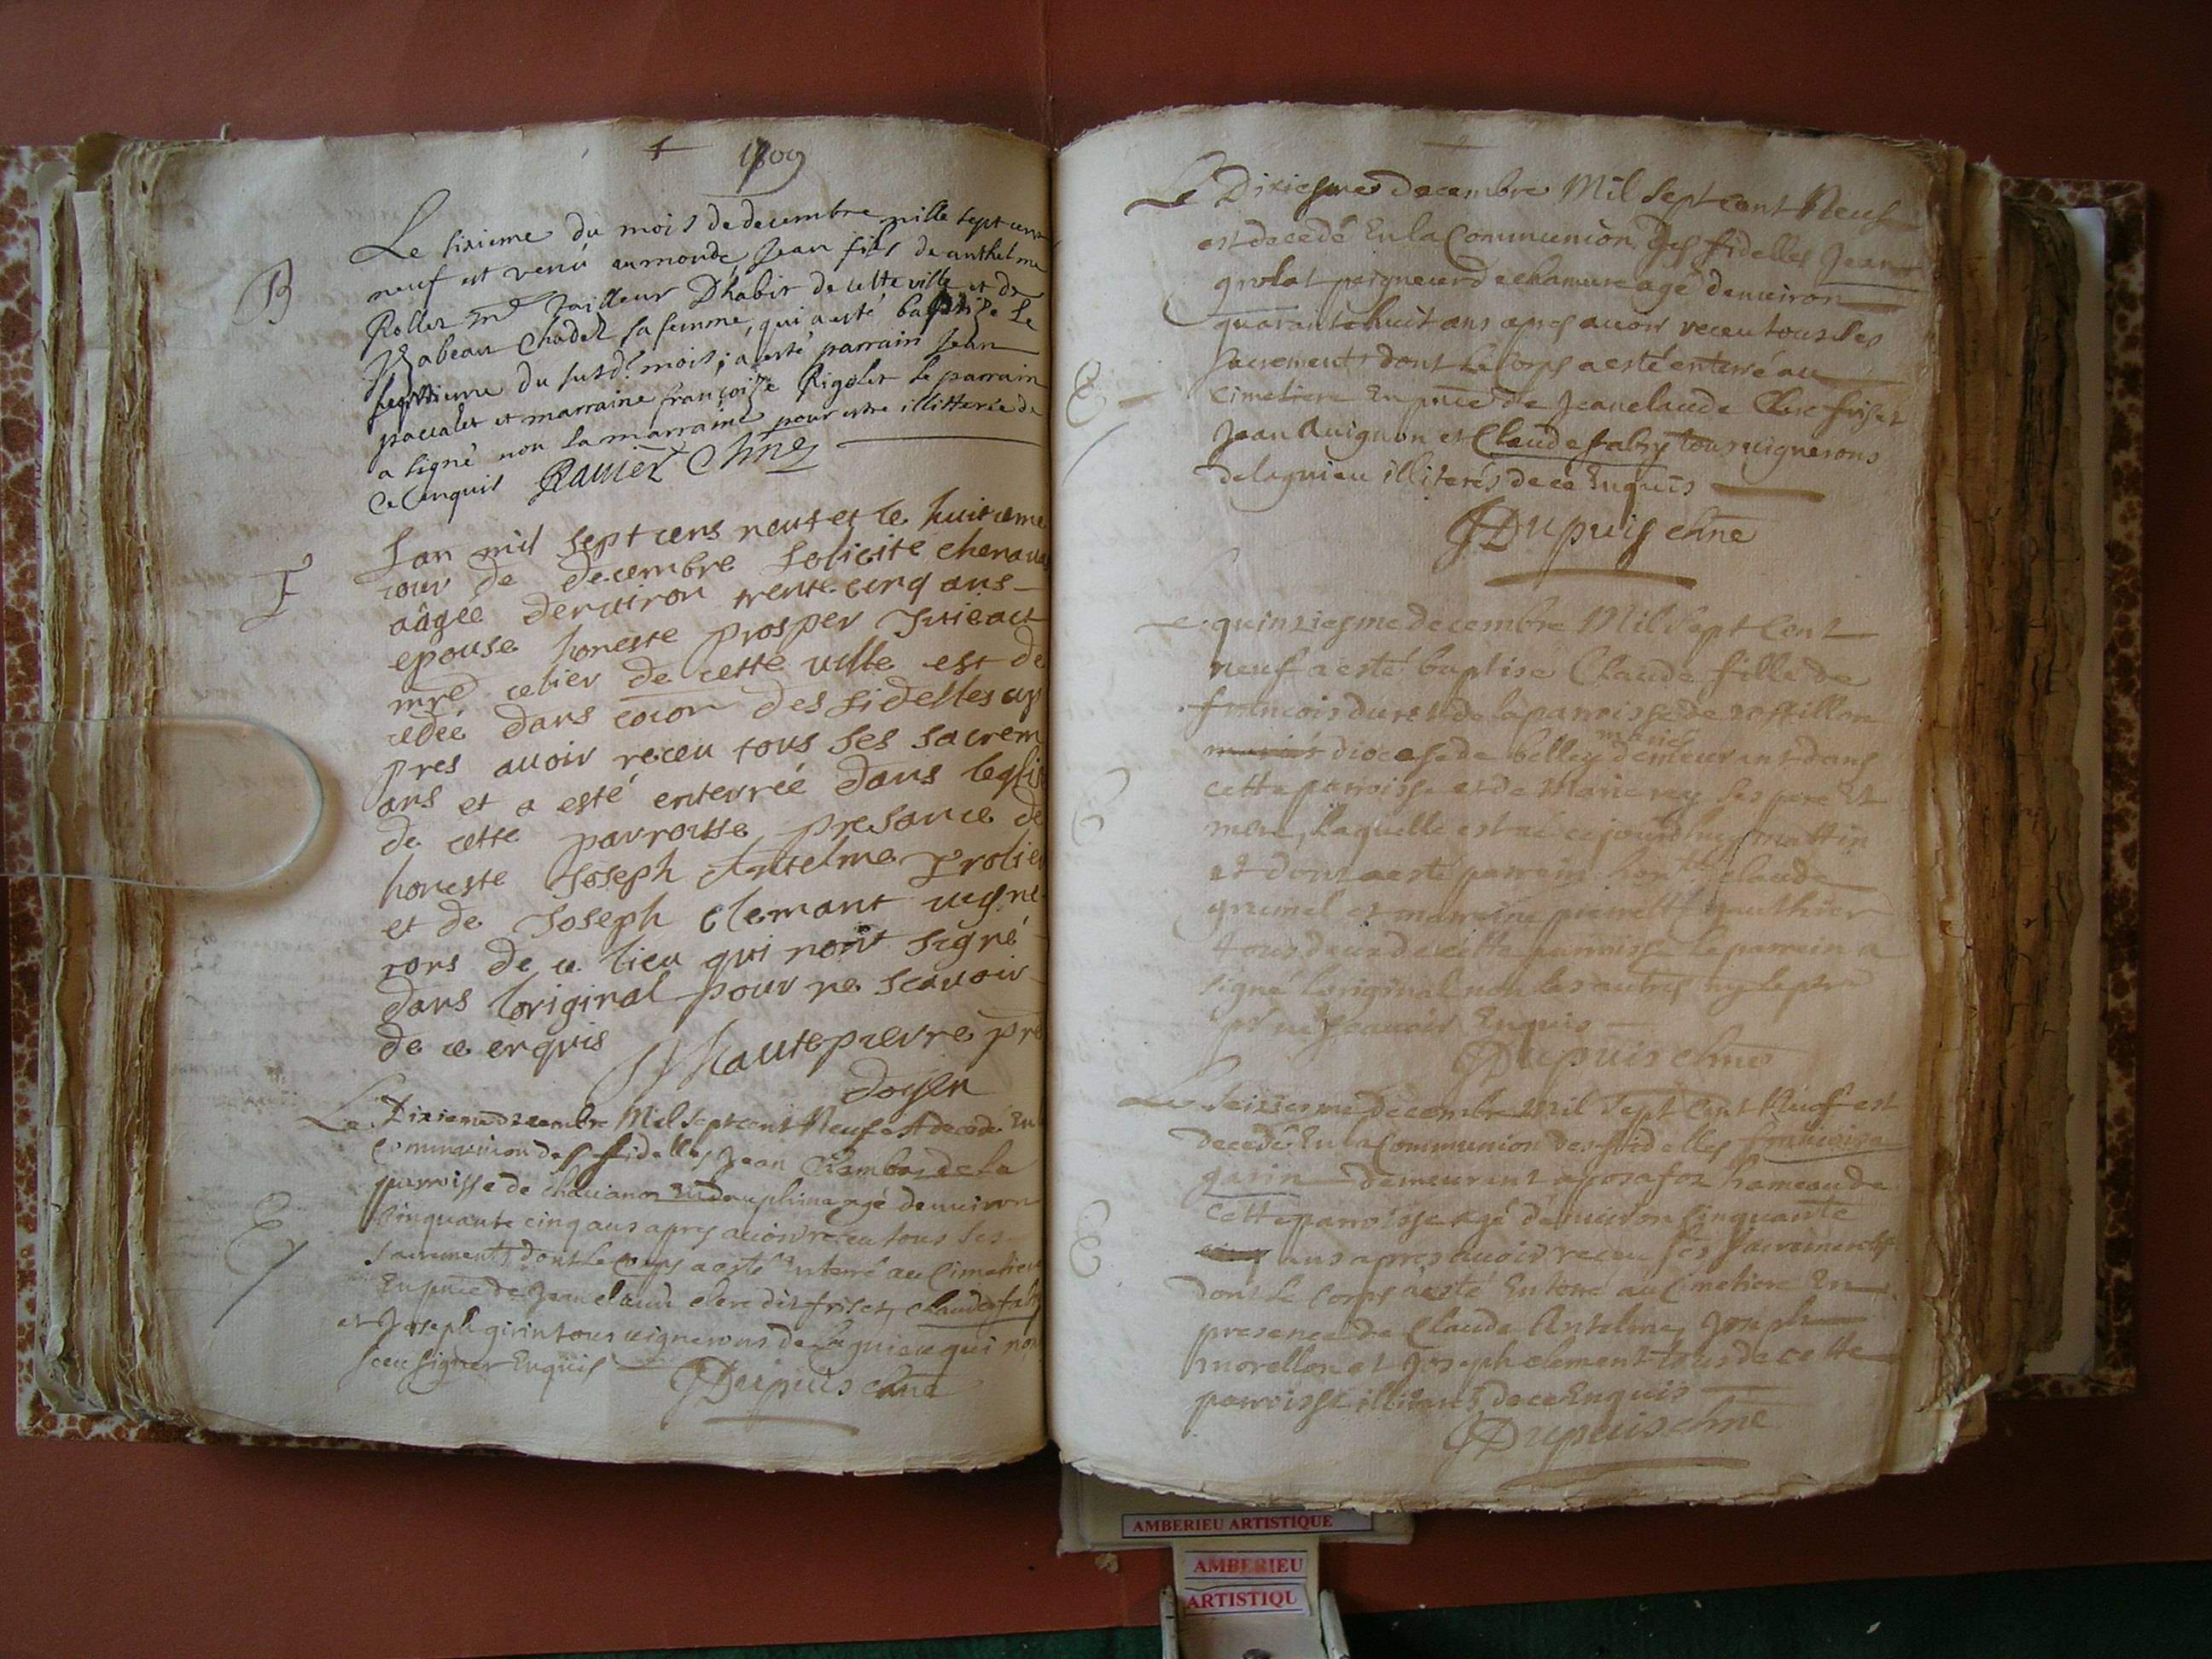 1709
B
Le sixieme du mois de decembre mille sept cens
neuf est venu au monde Jean fils de anthelme
Rollet md Tailleur D'habit de cette ville et de
Ysabeau Chadel sa femme, qui a esté baptisé le
septieme du susd. mois; a esté parrain Jean
pacalet et marraine françoise Rigolet le parrain
a signé non la marraine pour estre illitterée de
ce enquis Ravier Chne
E
Lan mil sept cens neuf et le huitieme
iour de decembre Solicite chenava
aâgée denuiron trente cinq ans
epouse honeste prosper
mre celier de cette uille est de
cedée dans coion des fidelles ap
pres auoir receu tous ses sacrem
ans et a esté enterrée dans leglis
de cette parroisse presance de
honeste Joseph Antelme
et de Joseph Clemant uigne
rons de ce lieu qui nont signé
dans loriginal pour ne scauoir
de ce enquis
J hautepierre pre
doyen
E
Le Dixieme decembre Mil sept cent Neuf est decedé En la
Communion des ffidelles Jean Chambo de la
parroisse de chauanoz En dauphine agé denuiron
Cinquante cinq ans apres auoir receu tous ses
sacrements dont Le Corps a esté Enterré au Cimetiere
En pnce de Jean claude clerc dit friset, claude fabry
et Joseph girin tous uignerons de Lagnieu qui non
sceu signer Enquis
JDupuis chne
E
Le Dixiesme decembre Mil Sept cent Neuf
est decedé En la Communion des ffidelles Jean
grolat peigneur de chanure agé denuiron
quarante huit ans apres auoir receu tous les
sacrements dont Le Corps a esté enterré au
Cimetiere En pnce de Jean claude Clerc friset
Jean Auignon et Claude fabry tous uignerons
de lagnieu illiterés de ce Enquis
JDupuis chne
B
Le quinziesme decembre Mil Sept Cent
neuf a esté baptisé Claude fille de
francois duret de la parroisse de rossillon
mariés
diocese de belley demeurant dans
cette parroisse et de Marie rey ses pere Et
mere, Laquelle est né ce jourdhuy mattin
et dont a esté parrain honble claude
grumel et marraine pierrette gauthier
tous deux de cette parroisse le parrain a
signé Loriginal non les autres ny le pere
pr ne scauoir Enquis
JDupuis chne
E
Le Seiziesme decembre Mil Sept Cent Neuf est
decedé En la Communion des ffidelles francoise
garin demeurant a posafoz hameau de
Cette parroisse agé denuiron Cinquante
ans apres auoir receu ses sacrements
dont Le Corps a esté Enterré au Cimetiere En
presence de Claude Antelme, Joseph
morellon et Joseph clement tous de cette
parroisse illiterés de ce Enquis
JDupuis chne
AMBERIEU ARTISTIQUE
AMBERIEU
ARTISTIQU